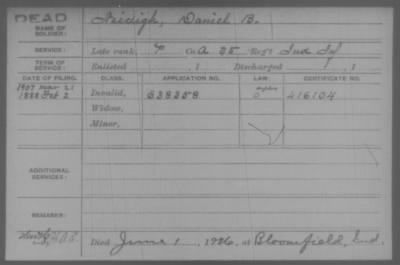 DEAD
NAME OF SOLDIER: Freidigh, Daniel B.
SERVICE: Late rank, Co. A 25 Reg't Ind. Inf
TERM OF SERVICE: Enlisted , 1 Discharged , 1
DATE OF FILING. CLASS. APPLICATION NO. LAW. CERTIFICATE NO.
1907 Mar 21
1888 Feb 2 Invalid, 638358 416104
Widow,
Minor,
ADDITIONAL SERVICES:
REMARKS:
Died June 1, 1926, at Bloomfield, Ind.